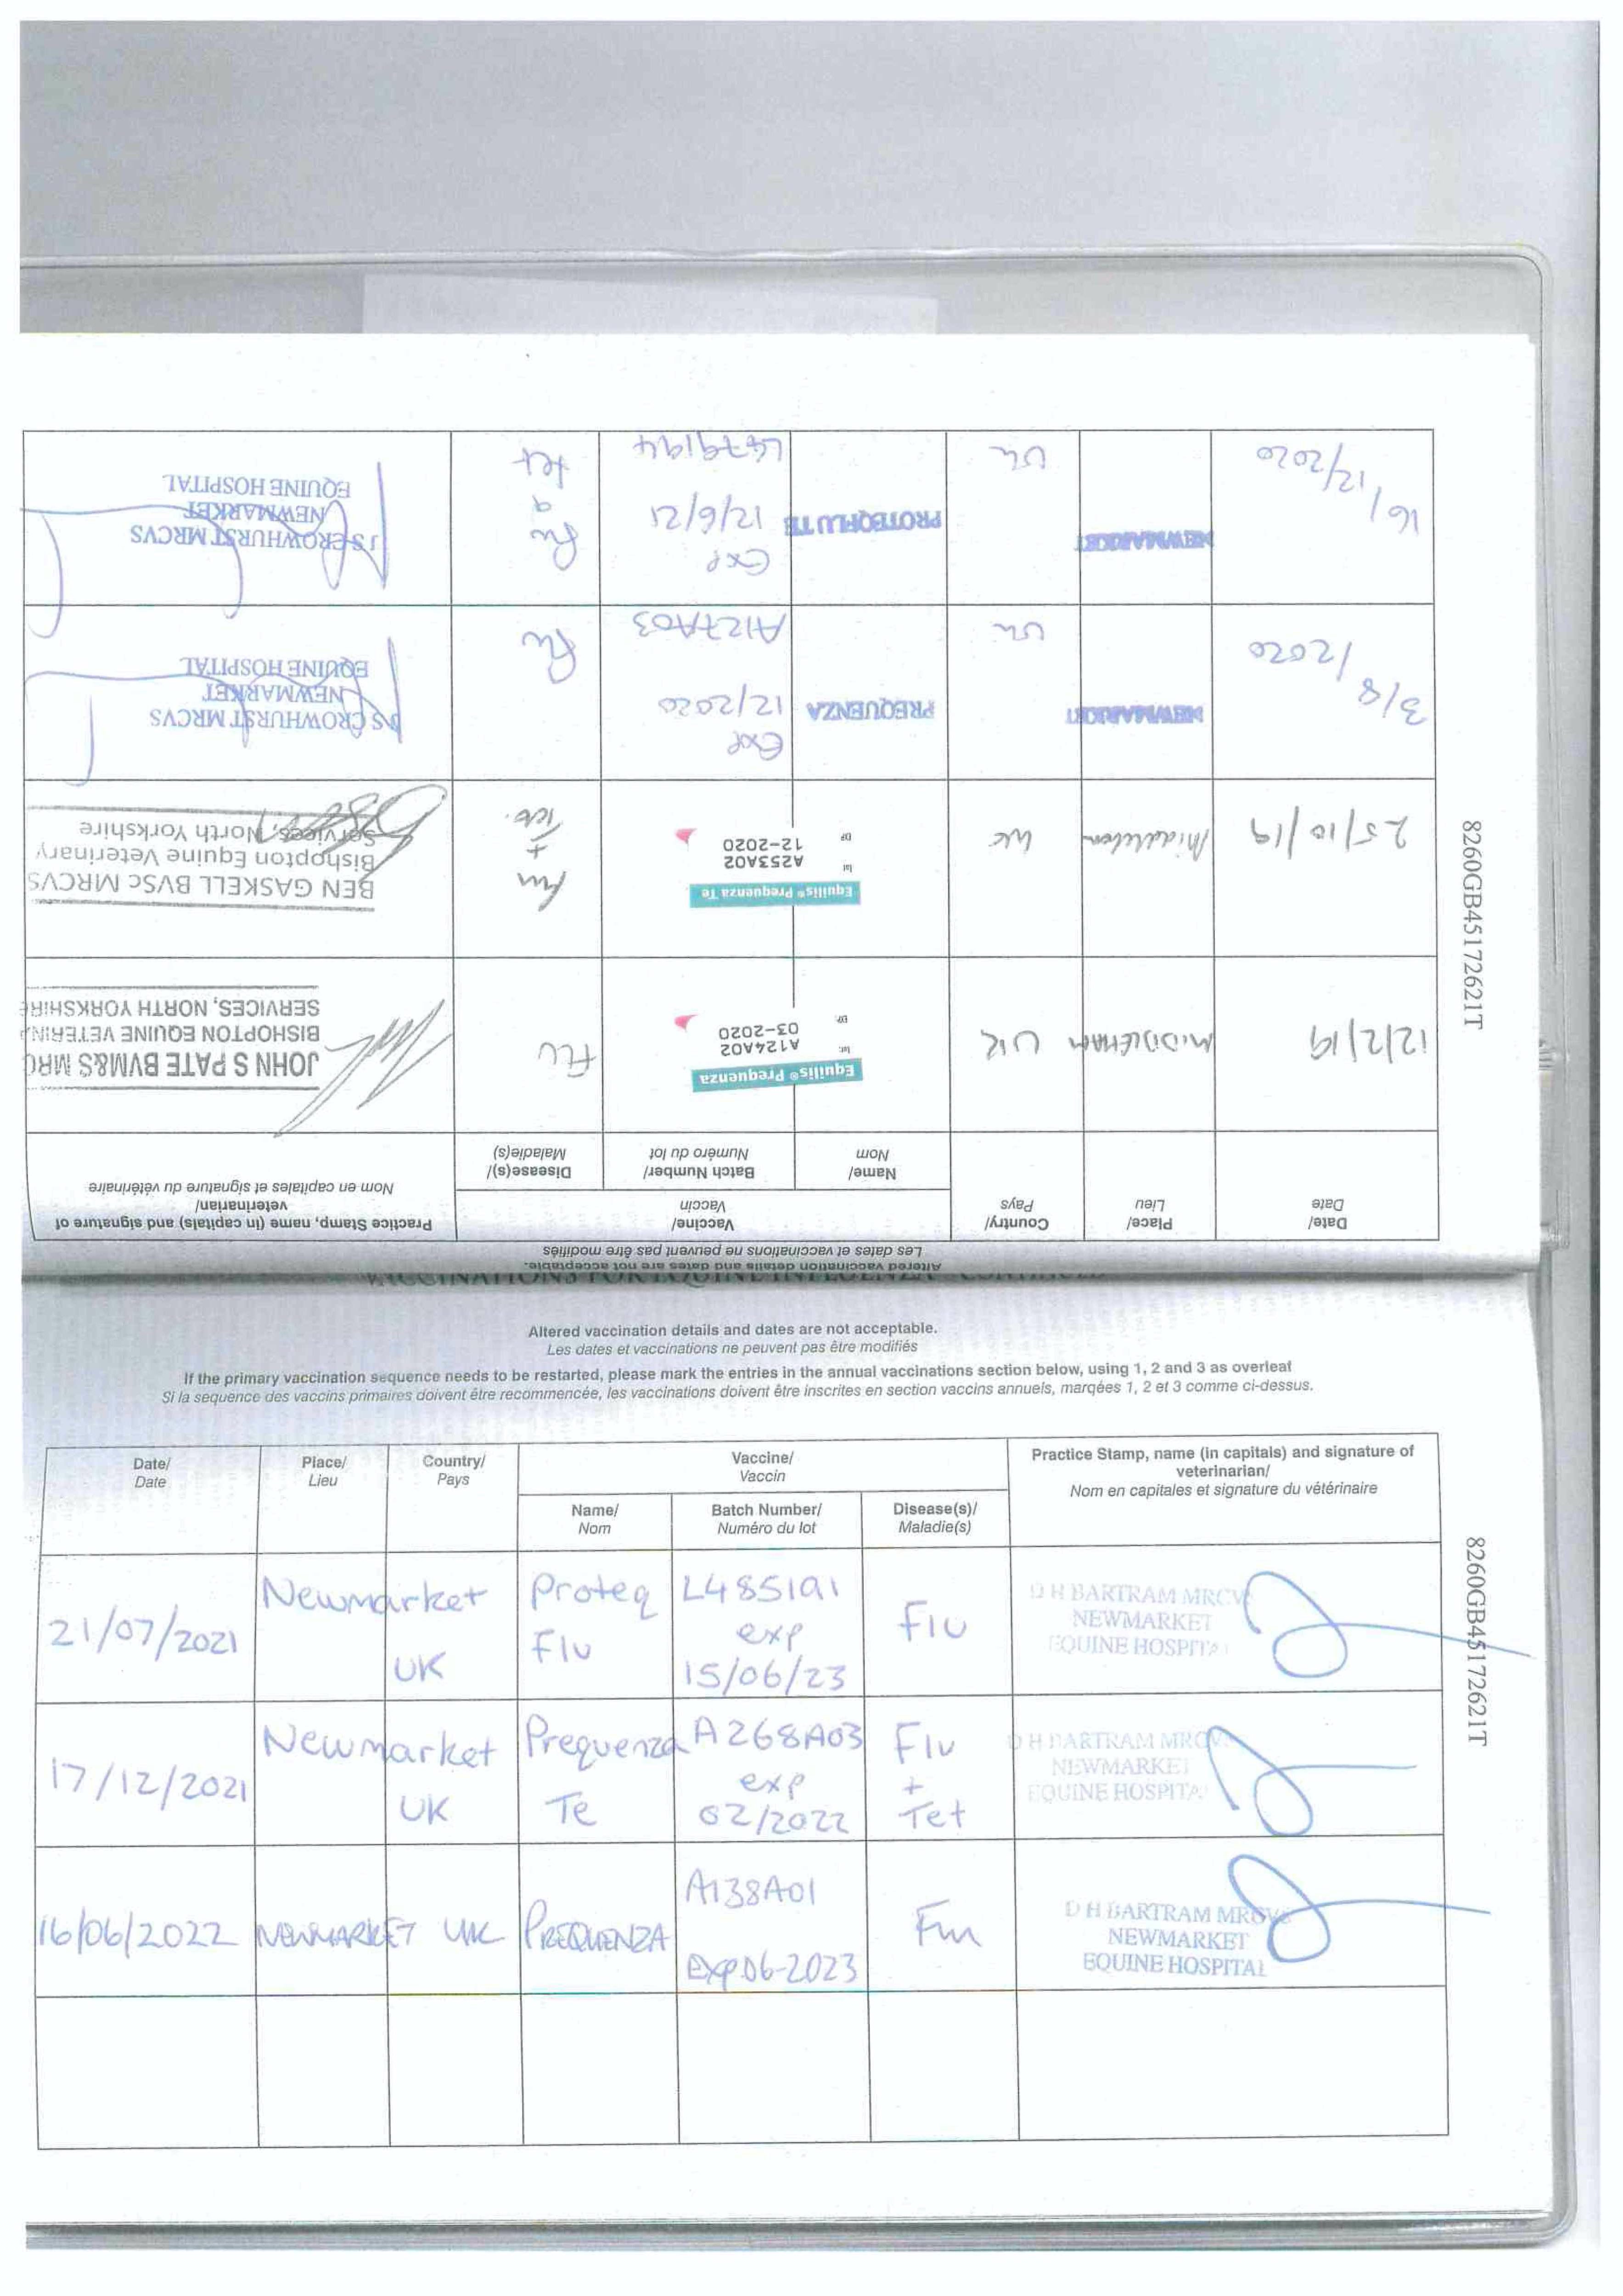 Altered vaccination details and dates are not acceptable.
Les dates et vaccinations ne peuvent pas être modifiés
Date/
Date
Place/
Lieu
Country/
Pays
Vaccine/
Vaccin
Name/
Nom
Batch Number/
Numéro du lot
Disease(s)/
Maladie(s)
Practice Stamp, name (in capitals) and signature of
veterinarian/
Nom en capitales et signature du vétérinaire
12/2/19
MIDDLEHAM
UK
Equilis® Prequenza
lot:
A124A02
EXP
03-2020
FLU
JOHN S PATE BVM&S MRC
BISHOPTON EQUINE VETERIN
SERVICES, NORTH YORKSHIRE
25/10/19
Middleham
UK
Equilis® Prequenza Te
lot
A253A02
12-2020
Flu
+
Tet.
BEN GASKELL BVSC MRCVS
Bishopton Equine Veterinary
Services, North Yorkshire
3/8/2020
NEWMARKET
UK
PREQUENZA
Exp
12/2020
A127A03
Flu
JS CROWHURST MRCVS
NEWMARKET
EQUINE HOSPITAL
16/12/2020
NEWMARKET
UK
PROTEQFLU TE
Exp
12/6/21
L479194
Flu
&
tet
JS CROWHURST MRCVS
NEWMARKET
EQUINE HOSPITAL
8260GB45172621T
VACCINATIONS FOR EQUINE INFLUENZA - CONTINUED
Altered vaccination details and dates are not acceptable.
Les dates et vaccinations ne peuvent pas être modifiés
If the primary vaccination sequence needs to be restarted, please mark the entries in the annual vaccinations section below, using 1, 2 and 3 as overleaf
Si la sequence des vaccins primaires doivent être recommencée, les vaccinations doivent être inscrites en section vaccins annuels, marqées 1, 2 et 3 comme ci-dessus.
Date/
Date
Place/
Lieu
Country/
Pays
Vaccine/
Vaccin
Name/
Nom
Batch Number/
Numéro du lot
Disease(s)/
Maladie(s)
Practice Stamp, name (in capitals) and signature of
veterinarian/
Nom en capitales et signature du vétérinaire
21/07/2021
Newmarket
UK
Proteq
Flu
L485191
exp
15/06/23
Flu
D H BARTRAM MRCV
NEWMARKET
EQUINE HOSPITA
17/12/2021
Newmarket
UK
Prequenza
Te
A268A03
exp
02/2022
Flu
+
Tet
D H BARTRAM MRCV
NEWMARKET
EQUINE HOSPITA
16/06/2022
NEWMARKET
UK
PREQUENZA
A138A01
exp 06-2023
Flu
D H BARTRAM MRCVS
NEWMARKET
EQUINE HOSPITAL
8260GB45172621T